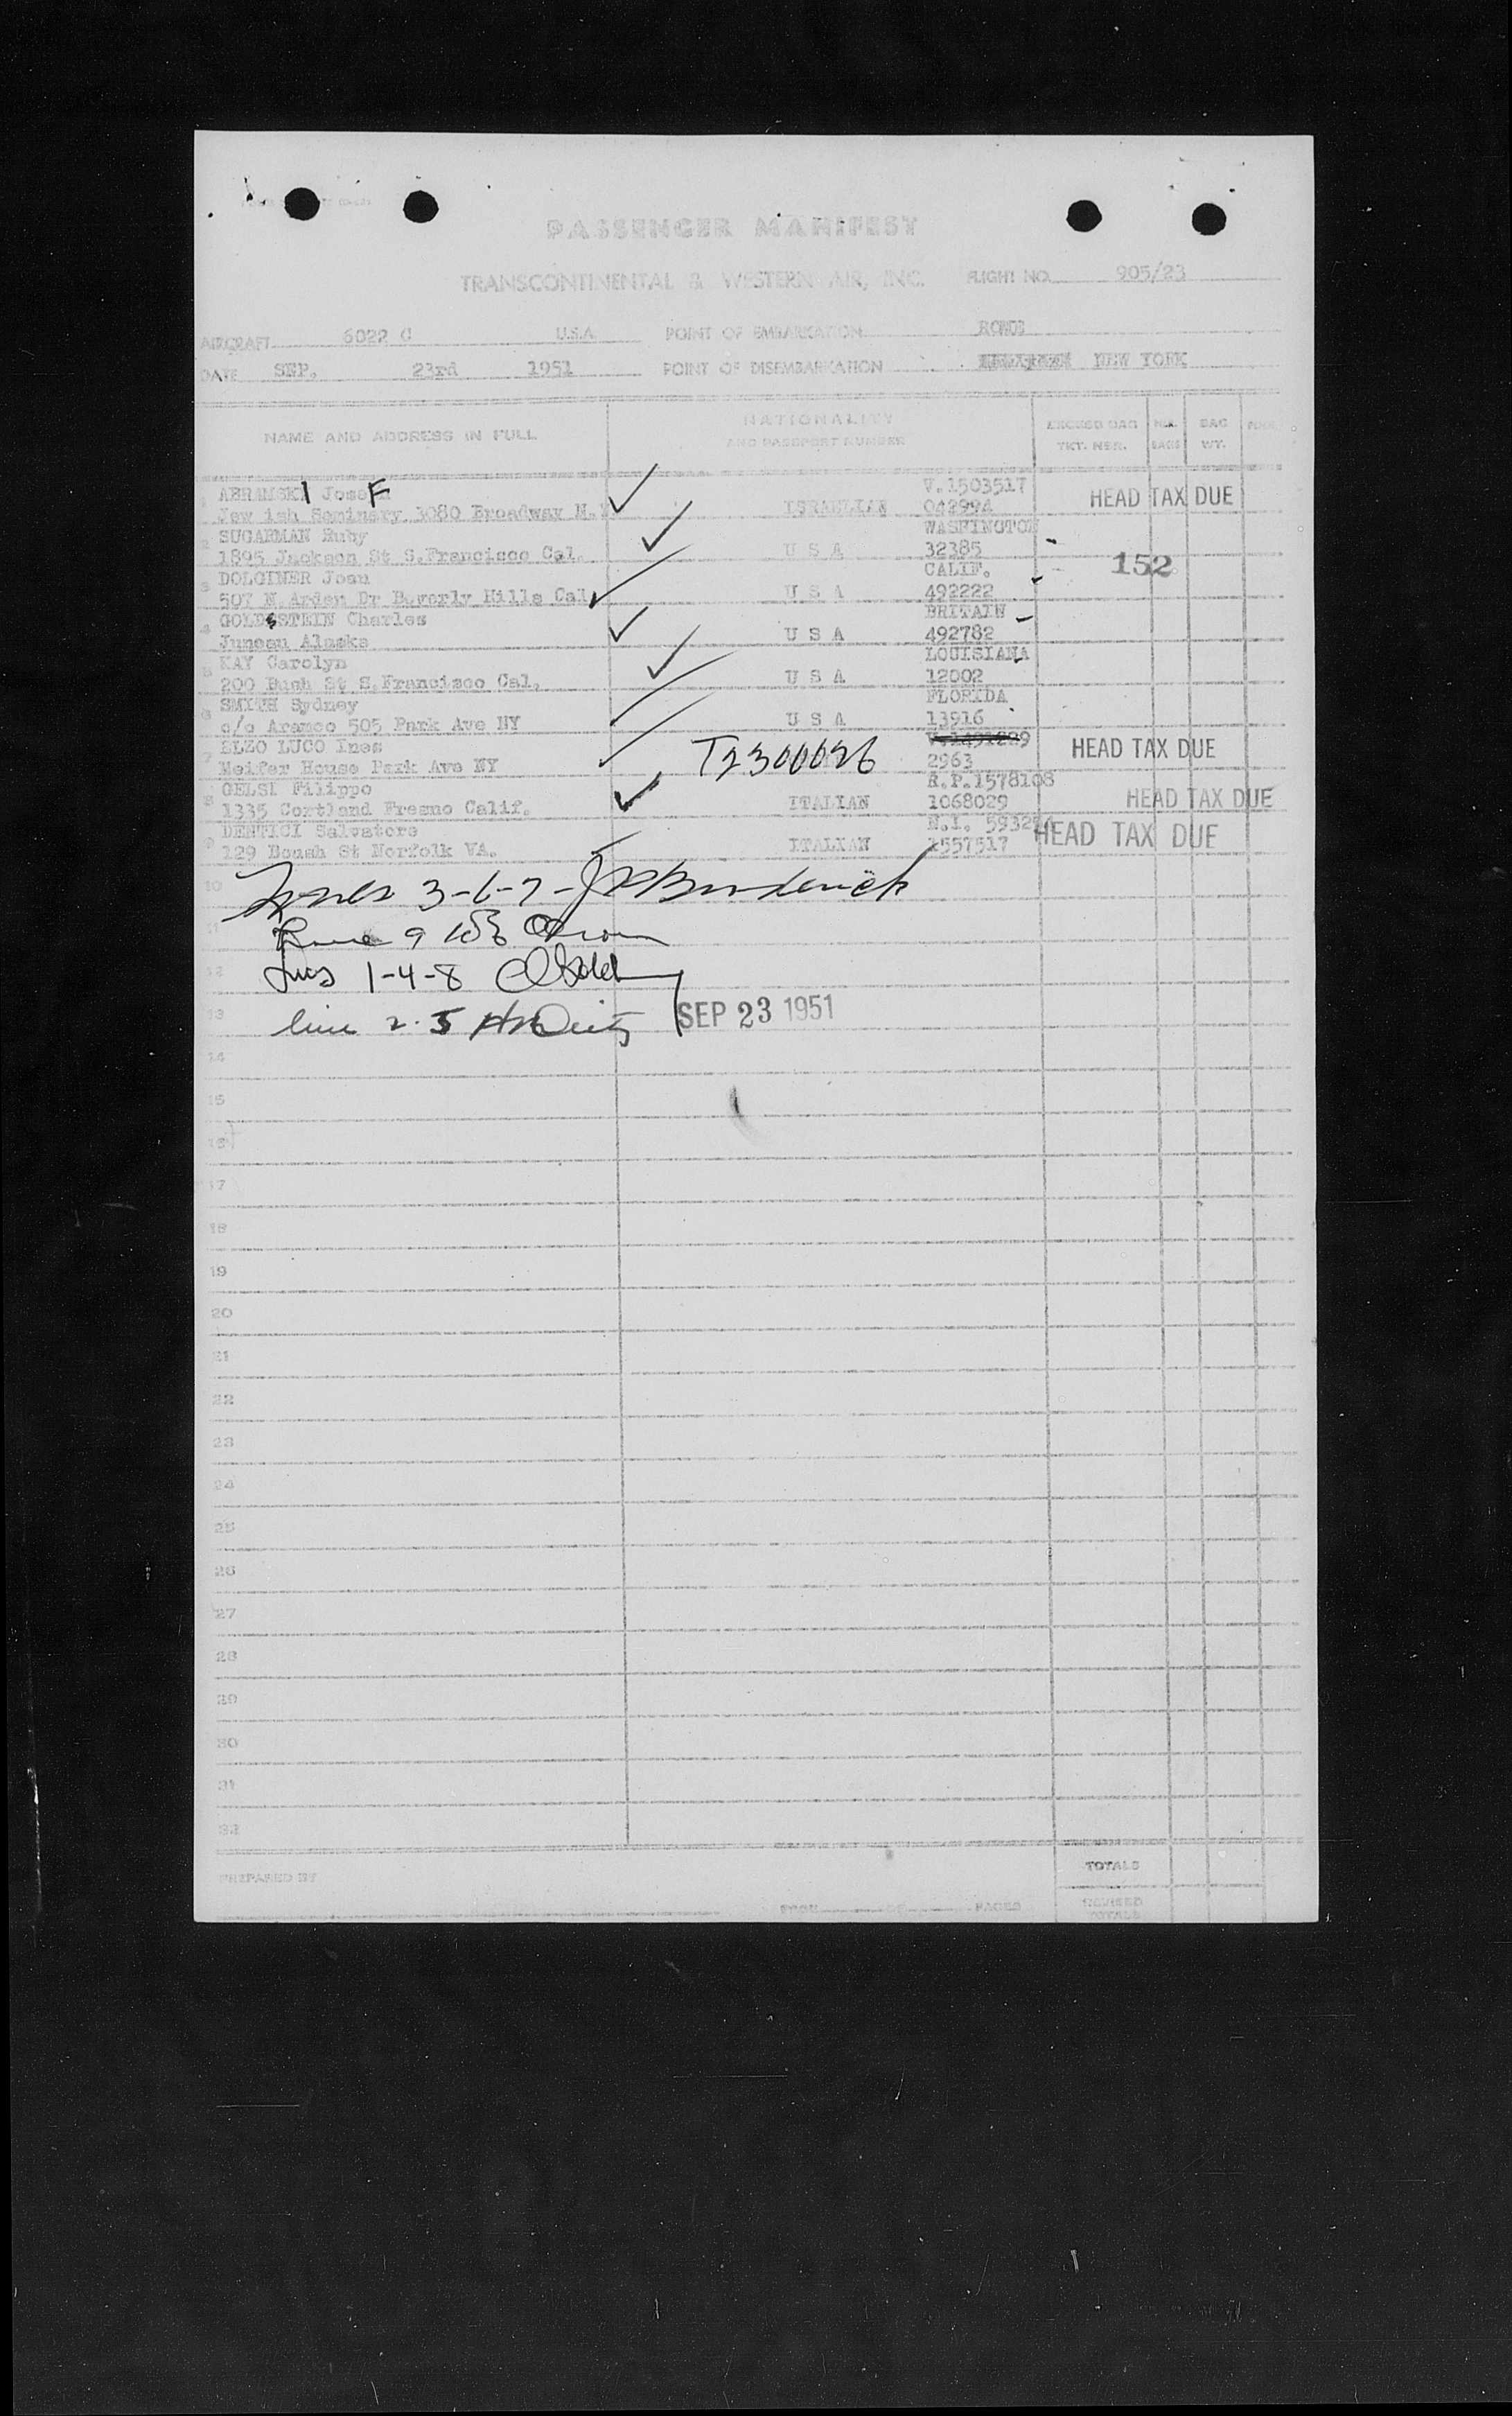 PASSENGER MANIFEST
TRANSCONTINENTAL & WESTERN AIR, INC. FLIGHT NO. 905/23
AIRCRAFT 6022 C U.S.A. POINT OF EMBARKATION ROME
DATE SEP. 23rd 1951 POINT OF DISEMBARKATION NEW YORK
NAME AND ADDRESS IN FULL NATIONALITY AND PASSPORT NUMBER EXCESS BAG TKT. NBR. NBR. BAGS BAG WT.
1 ABRAMSKI JoseF V.1503517 HEAD TAX DUE
Jew ish Seminary 3080 Broadway N.Y. ISRAELIAN 042994
2 SUGARMAN Ruby WASHINGTON
1895 Jackson St S.Francisco Cal. U S A 32385
152
3 DOLGINER Joan CALIF.
507 N Arden Dr Beverly Hills Cal. U S A 492222
4 GOLDSTEIN Charles BRITAIN
Juneau Alaska U S A 492782
5 KAY Carolyn LOUISIANA
200 Bush St S.Francisco Cal. U S A 12002
6 SMITH Sydney FLORIDA
c/o Aramco 505 Park Ave NY U S A 13916
7 ELZO LUCO Ines T2300626 HEAD TAX DUE
Meifer House Park Ave NY 2963
8 GELSI Filippo R.P.1578108
1335 Cortland Fresno Calif. ITALIAN 1068029 HEAD TAX DUE
9 DENTICI Salvatore N.I. 59329 HEAD TAX DUE
129 Boush St Norfolk VA. ITALIAN 1557517
10 3-6-7- Broderick
11 9
12 1-4-8
13 line 2-5 SEP 23 1951
14
15
16
17
18
19
20
21
22
23
24
25
26
27
28
29
30
31
32
TOTALS
PREPARED BY
PAGE OF PAGES REVISED TOTALS